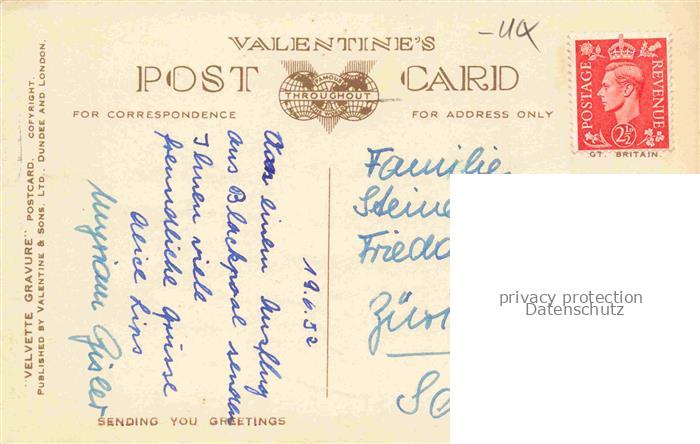 -UQ
VALENTINE'S
POST CARD
FAMOUS
THROUGHOUT
THE WORLD
FOR CORRESPONDENCE
FOR ADDRESS ONLY
POSTAGE
REVENUE
2½
GT. BRITAIN.
"VELVETTE GRAVURE" POSTCARD. COPYRIGHT.
PUBLISHED BY VALENTINE & SONS, LTD., DUNDEE AND LONDON.
19.6.52
Von einem Ausflug
aus Blackpool senden
Ihnen viele
freundliche Grüsse
Alice Lips
Myriam Gisler
Familie
Steine
Fried
Zür
privacy protection
Datenschutz
SENDING YOU GREETINGS